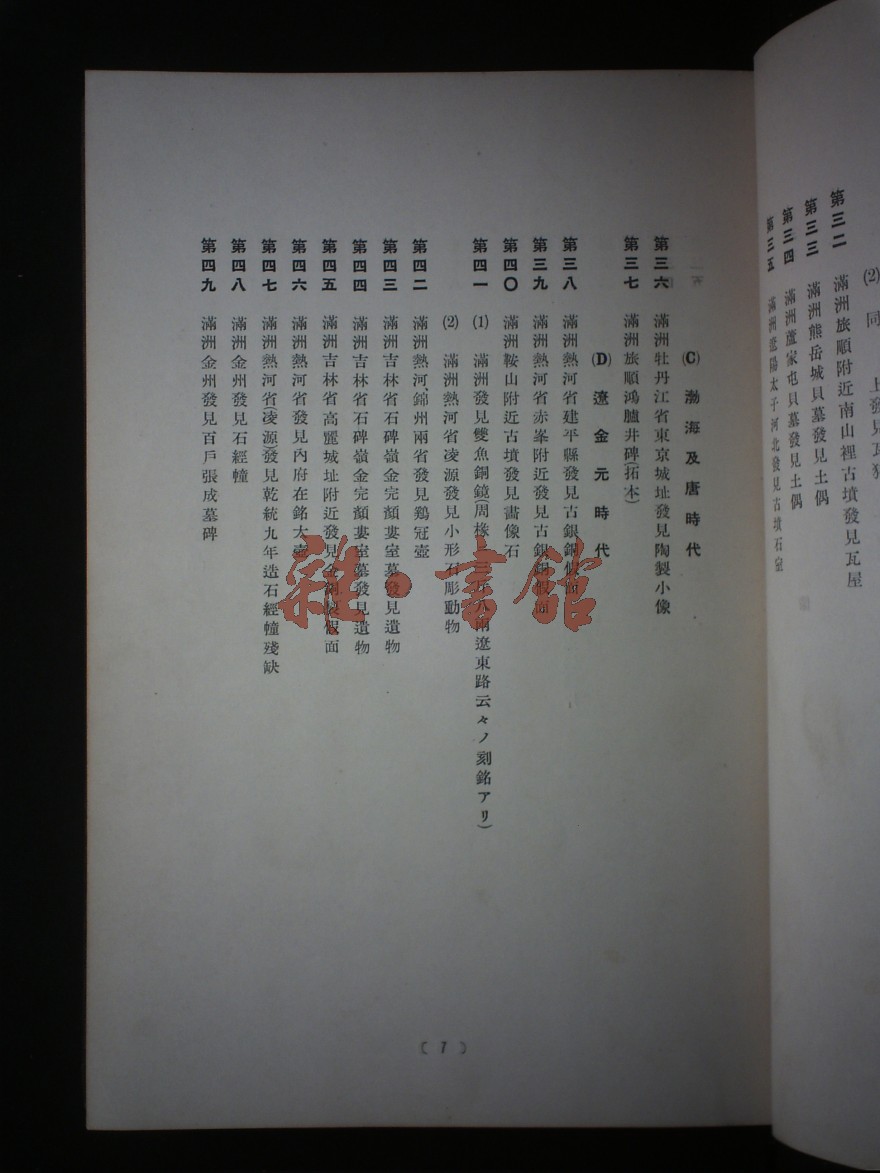 (2) 同 上發見瓦
第三二 滿洲旅順附近南山裡古墳發見瓦屋
第三三 滿洲熊岳城貝墓發見土偶
第三四 滿洲蘆家屯貝墓發見土偶
第三五 滿洲遼陽太子河北發見古墳石室
(C) 渤海及唐時代
第三六 滿洲牡丹江省東京城址發見陶製小像
第三七 滿洲旅順鴻臚井碑(拓本)
(D) 遼金元時代
第三八 滿洲熱河省建平縣發見古銀銅假面
第三九 滿洲熱河省赤峯附近發見古銀銅假面
第四〇 滿洲鞍山附近古墳發見畫像石
第四一 (1) 滿洲發見雙魚銅鏡(周椽上三 南遼東路云々ノ刻銘アリ)
(2) 滿洲熱河省凌源發見小形石彫動物
第四二 滿洲熱河、錦州兩省發見鷄冠壺
第四三 滿洲吉林省石碑嶺金完顏婁室墓發見遺物
第四四 滿洲吉林省石碑嶺金完顏婁室墓發見遺物
第四五 滿洲吉林省高麗城址附近發見金銅製假面
第四六 滿洲熱河省發見內府在銘大壺
第四七 滿洲熱河省(凌源)發見乾統九年造石經幢殘缺
第四八 滿洲金州發見石經幢
第四九 滿洲金州發見百戶張成墓碑
( 7 )
雜·書館